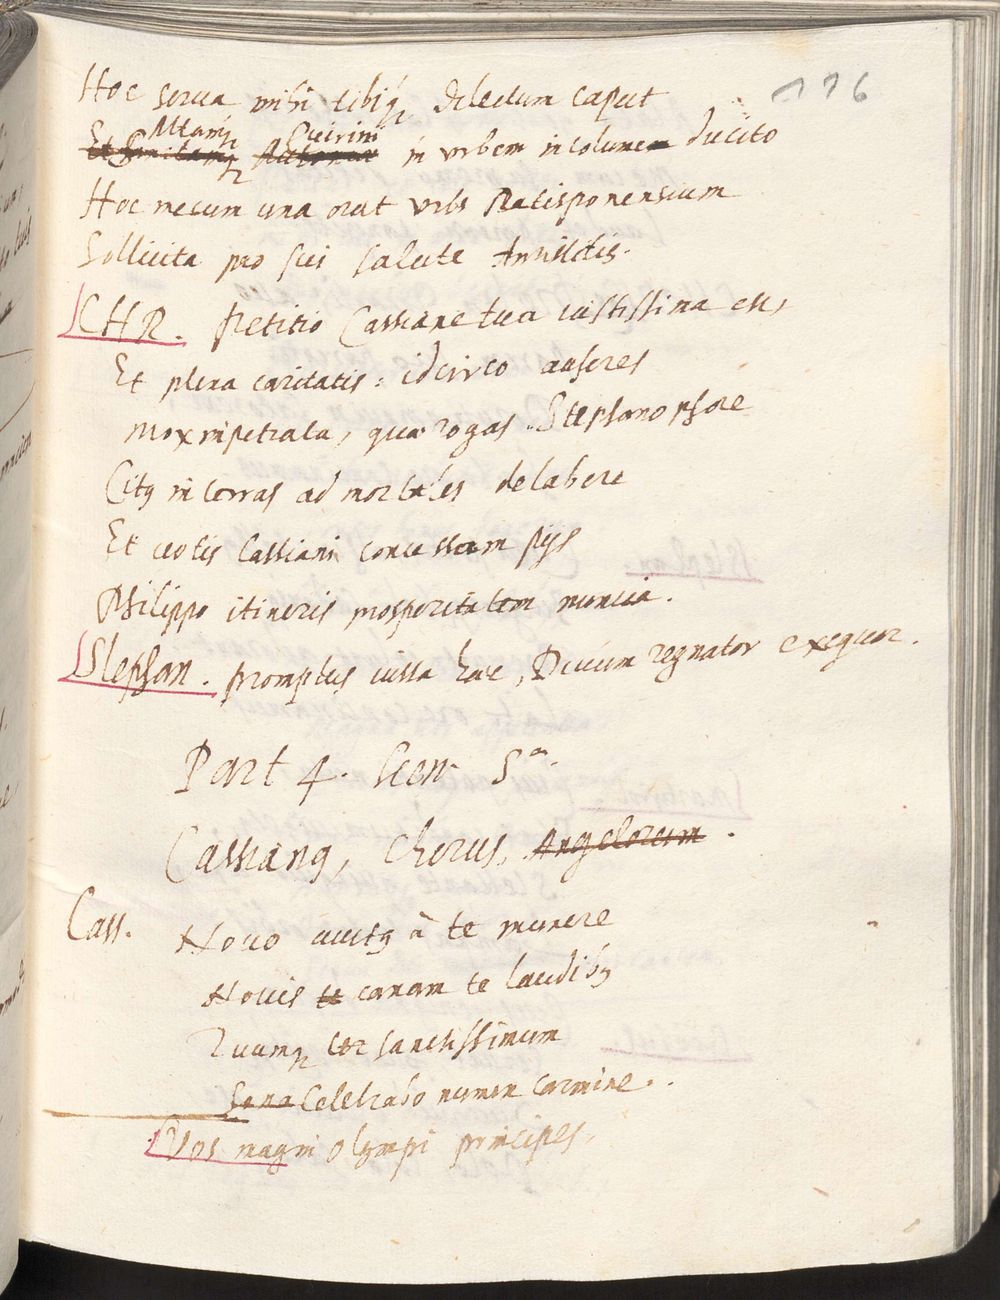 176
Hoc serua mihi tibiq; dilectum caput
Altamq; Quirini
Et in urbem incolumem ducito
Hoc mecum una orat Vrbs Ratisponensium
Sollicita pro sui salute Antistitis.
CHR. Petitio Cassiane tua iustissima est,
Et plena caritatis: idcirco auferes
Mox impetrata, quae rogas. Stephanophore
Citus in terras ad mortales delabere
Et uotis Cassiani concessam pijs
Philippo itineris prosperitatem nuncia.
Stephan. promptus iussa haec, Diuum regnator exequor.
Part 4. Scen. 5a.
Cassianus, Chorus, Angelorum.
Cass. Nouo auctus à te munere
Nouis te canam te laudibus
Tuumq; ter sanctissimum
Sono Celebrabo numen carmine.
Vos magni Olympi principes,